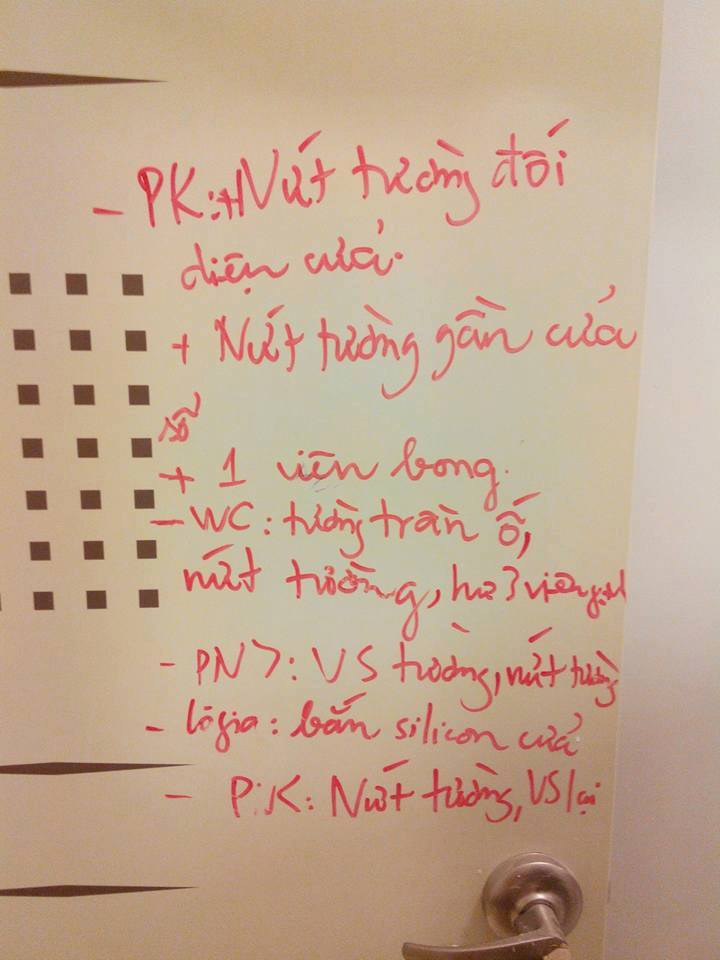 - PK: + Nứt tường đối
diện cửa.
+ Nứt tường gần cửa
sổ
+ 1 viên bong.
- WC: tường trần ố,
nứt tường, hư 3 viên gạch
- PN>: VS tường, nứt tường
- lôgia: bắn silicon cửa
- P.K: Nứt tường, VS lại